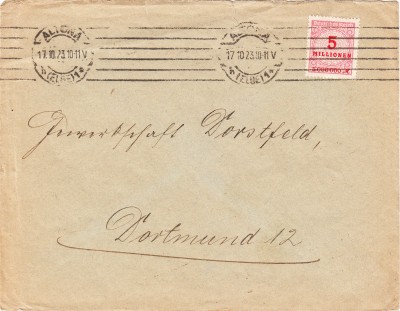 ALTONA
17.10.23.10-11 V
* (ELBE) 1 *
ALTONA
17.10.23.10-11 V
* (ELBE) 1 *
5
MILLIONEN
5000000 M
Gewerkschaft Dorstfeld,
Dortmund 12